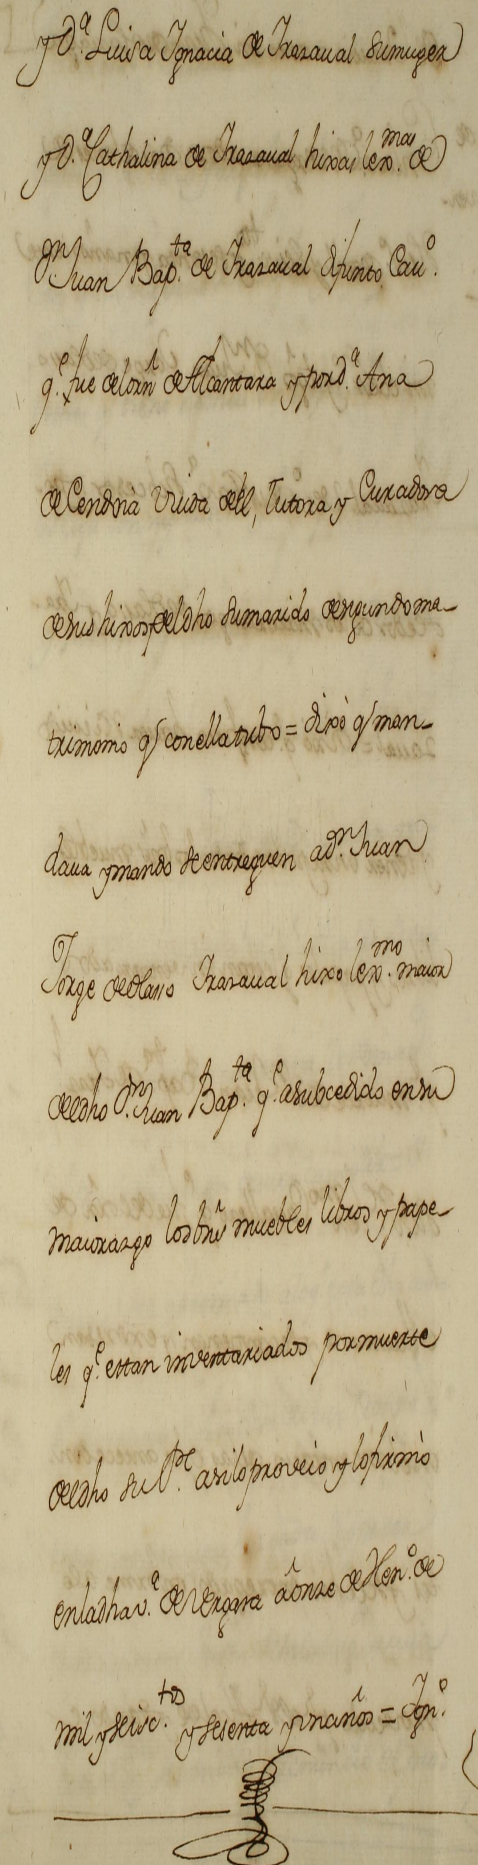 y D.ª Luisa Ignacia de Irasaual su muger
y D.ª Cathalina de Irasaual hixas lex.mas de
D.n Juan Bap.ta de Irasaual difunto Cau.º
q.e fue del orñ de Alcantara y por d.ª Ana
de Cendoia Viuda del, Tutora y Curadora
de sus hixos, y del dho su marido de segundo ma-
trimonio q/ con ella tubo = dixò q/ man-
daua y mando se entreguen a d.n Juan
Jorge de Olasso Irasaual hixo lex.mo maior
del dho D.n Juan Bap.ta q.e a subcedido en su
maiorazgo los bnŝ muebles libros y pape-
les q.e estan inventariados por muerte
del dho su P.e asi lo proveio y lo firmò
en la dha v.ª de Vergara a onze de Hen.º de
mil y seisc.tos y sesenta y un años = Ign.º